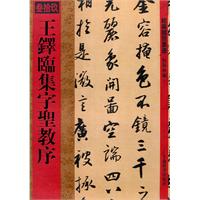 叁拾玖
王鐸臨集字聖教序
金容掩色不鏡三千之
光麗象開圖空端四八
之相於是微言廣被拯